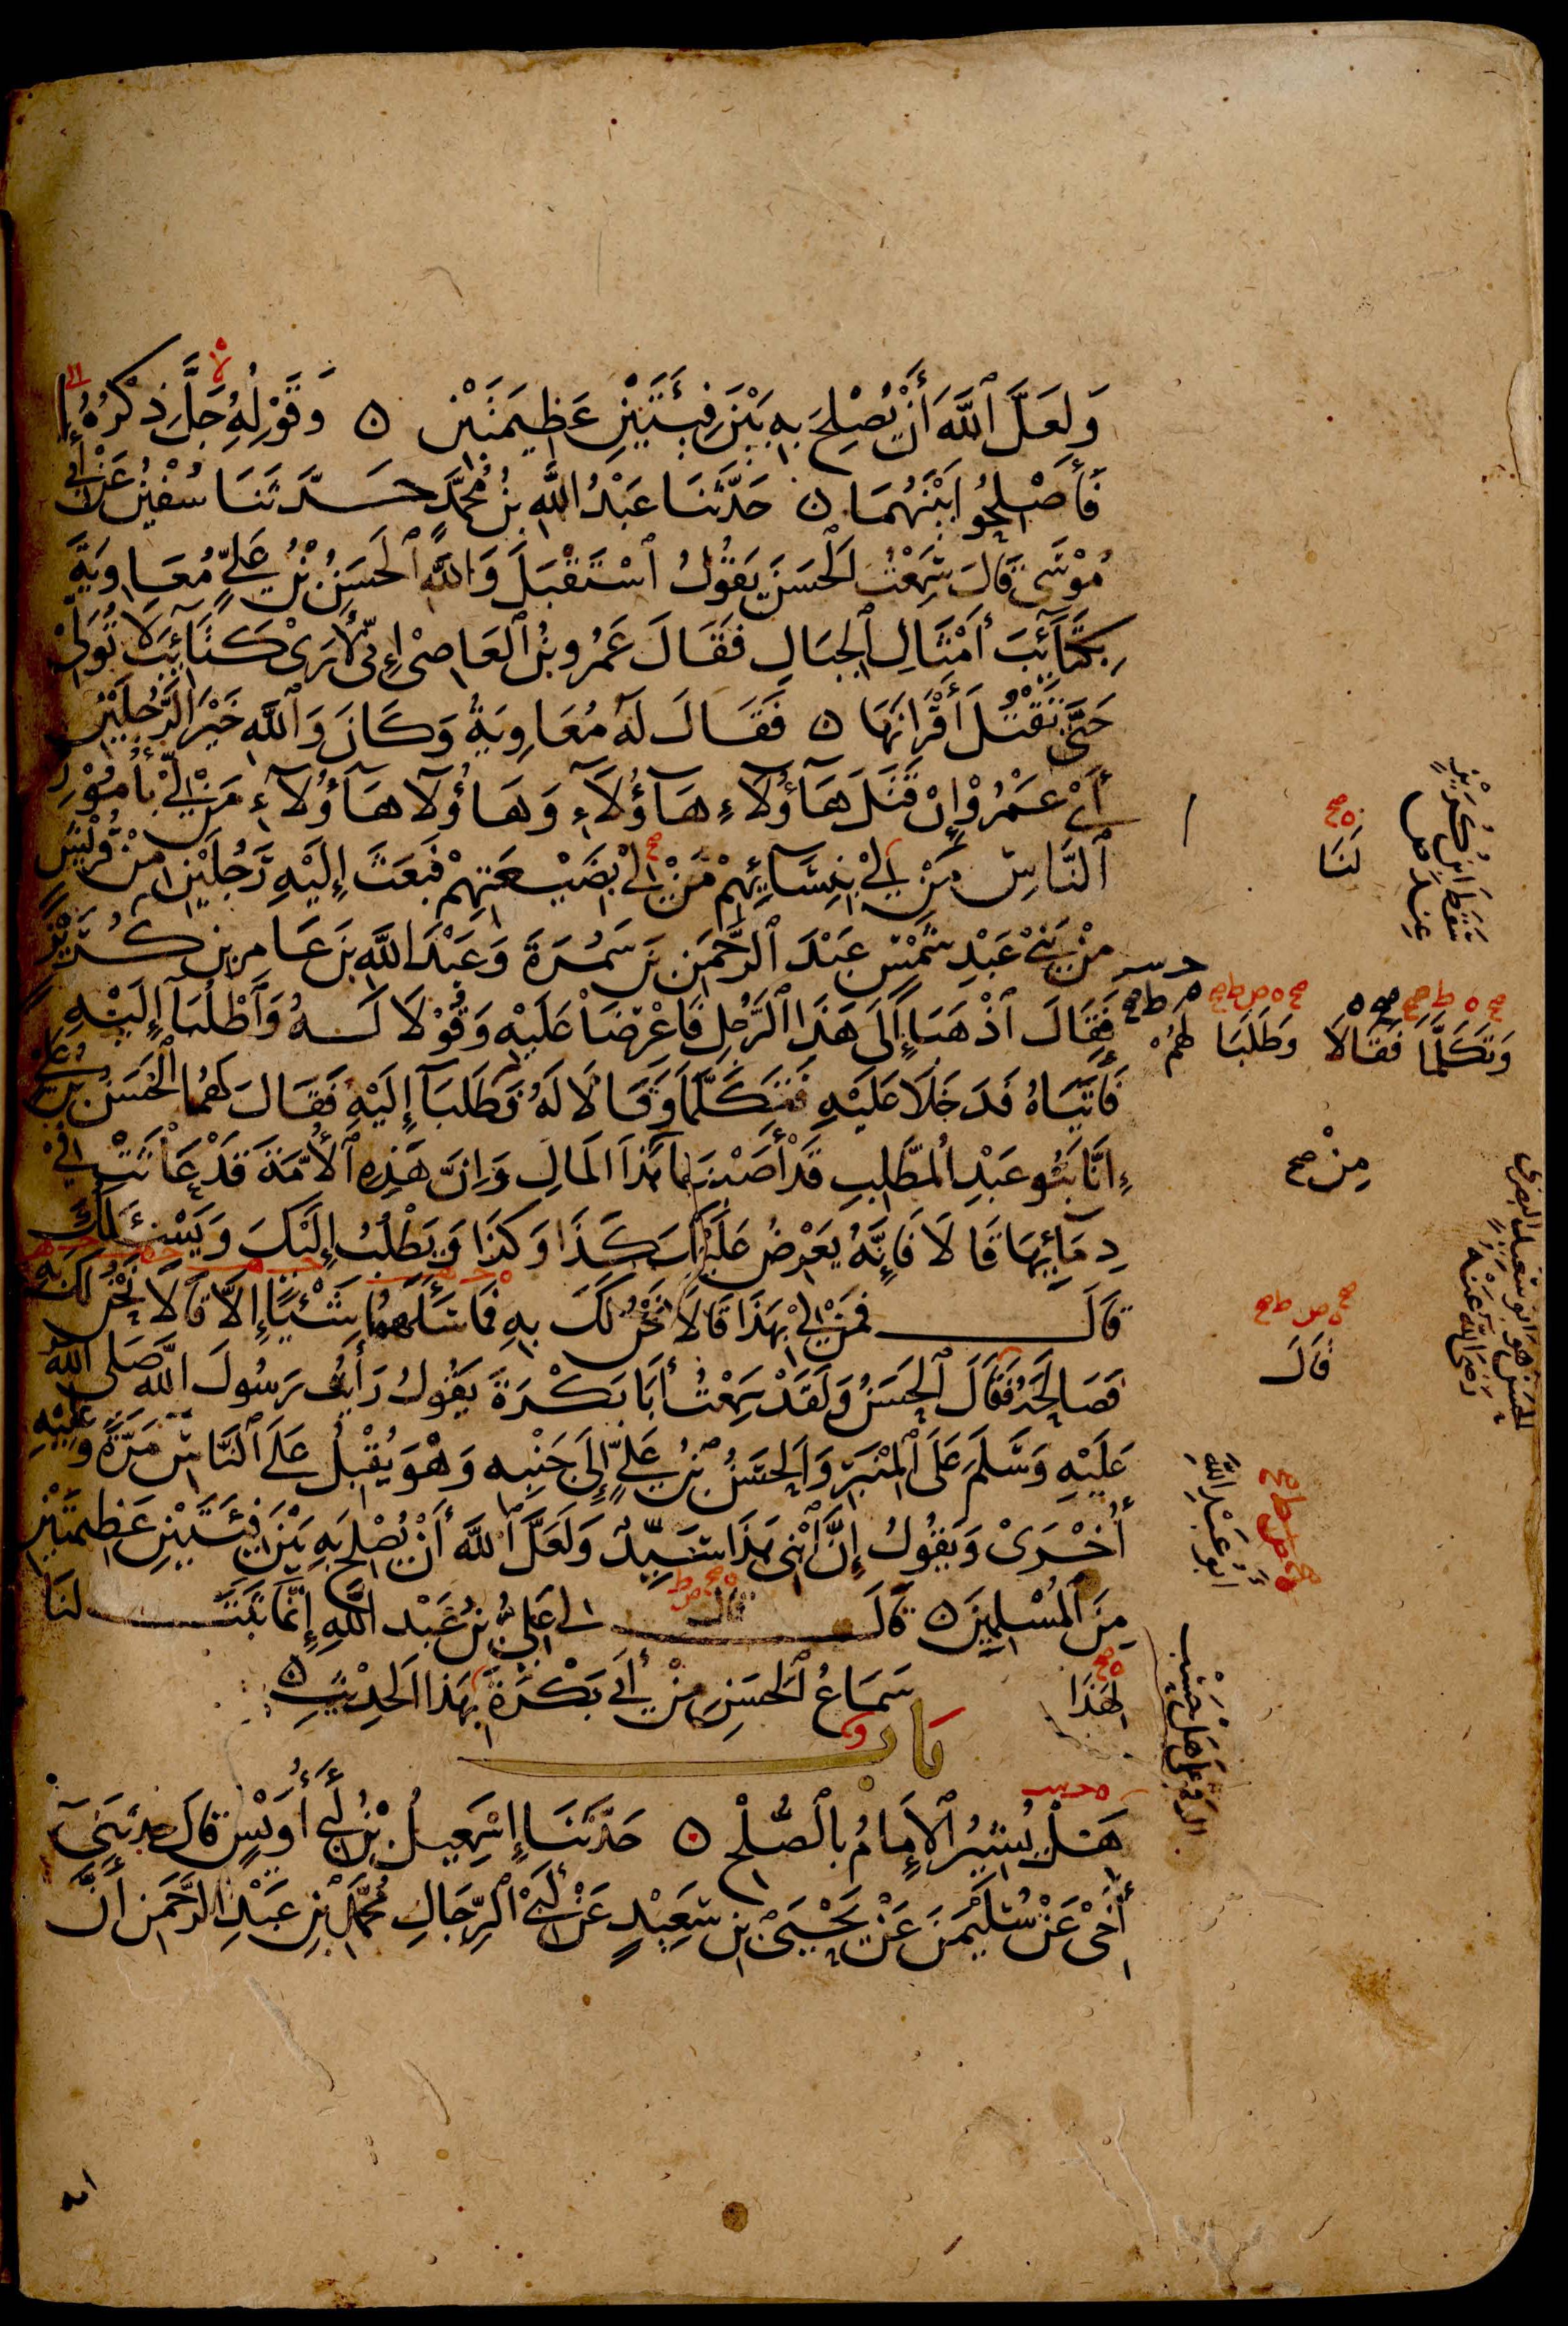 وَلَعَلَّ ٱللَّهَ أَنْ يُصْلِحَ بِهِ بَيْنَ فِئَتَيْنِ عَظِيمَتَيْنِ ۝ وَقَوْلِهِ جَلَّ ذِكْرُهُ
فَأَصْلِحُوا بَيْنَهُمَا ۝ حَدَّثَنَا عَبْدُ اللَّهِ بْنُ مُحَمَّدٍ حَدَّثَنَا سُفْيٰنُ عَنْ أَبِي
مُوْسَى قَالَ سَمِعْتُ الْحَسَنَ يَقُولُ ٱسْتَقْبَلَ وَاللَّهِ ٱلْحَسَنُ بْنُ عَلِيٍّ مُعَاوِيَةَ
بِكَتَآئِبَ أَمْثَالِ ٱلْجِبَالِ فَقَالَ عَمْرُو بْنُ ٱلْعَاصِي إِنِّي لَأَرَى كَتَآئِبَ لَا تُوَلِّي
حَتَّى تَقْتُلَ أَقْرَانَهَا ۝ فَقَالَ لَهُ مُعَاوِيَةُ وَكَانَ وَٱللَّهِ خَيْرَ الرَّجُلَيْنِ
أَيْ عَمْرُو إِنْ قَتَلَ هَآؤُلَآءِ هَآؤُلَآءِ وَهَآؤُلَآءِ هَآؤُلَآءِ مَنْ لِي بِأُمُوْرِ
ٱلنَّاسِ مَنْ لِي بِنِسَآئِهِمْ مَنْ لِي بِضَيْعَتِهِمْ فَبَعَثَ إِلَيْهِ رَجُلَيْنِ مِنْ قُرَيْشٍ
مِنْ بَنِي عَبْدِ شَمْسٍ عَبْدَ ٱلرَّحْمٰنِ بْنَ سَمُرَةَ وَعَبْدَ اللَّهِ بْنَ عَامِرِ بْنِ كُرَيْزٍ
فَقَالَ ٱذْهَبَا إِلَى هَذَا ٱلرَّجُلِ فَاعْرِضَا عَلَيْهِ وَقُوْلَا لَهُ وَٱطْلُبَآ إِلَيْهِ
فَأَتَيَاهُ فَدَخَلَا عَلَيْهِ فَتَكَلَّمَا وَقَالَا لَهُ وَطَلَبَآ إِلَيْهِ فَقَالَ لَهُمَا ٱلْحَسَنُ بْنُ عَلِيٍّ
إِنَّا بَنُو عَبْدِ الْمُطَّلِبِ قَدْ أَصَبْنَا هَذَا الْمَالِ وَإِنَّ هَذِهِ ٱلْأُمَّةَ قَدْ عَاثَتْ فِي
دِمَآئِهَا قَالَا فَإِنَّهُ يَعْرِضُ عَلَيْكَ كَذَا وَكَذَا وَيَطْلُبُ إِلَيْكَ وَيَسْئَلُكَ
قَالَ فَمَنْ لِي بِهَذَا قَالَا نَحْنُ لَكَ بِهِ فَمَا سَأَلَهُمَا شَيْئًا إِلَّا قَالَا نَحْنُ لَكَ بِهِ
فَصَالَحَهُ فَقَالَ ٱلْحَسَنُ وَلَقَدْ سَمِعْتُ أَبَا بَكْرَةَ يَقُولُ رَأَيْتُ رَسُولَ اللَّهِ صَلَّى اللَّهُ
عَلَيْهِ وَسَلَّمَ عَلَى الْمِنْبَرِ وَالْحَسَنُ بْنُ عَلِيٍّ إِلَى جَنْبِهِ وَهُوَ يُقْبِلُ عَلَى ٱلنَّاسِ مَرَّةً وَعَلَيْهِ
أُخْرَى وَيَقُولُ إِنَّ ٱبْنِي هَذَا سَيِّدٌ وَلَعَلَّ ٱللَّهَ أَنْ يُصْلِحَ بِهِ بَيْنَ فِئَتَيْنِ عَظِيمَتَيْنِ
مِنَ ٱلْمُسْلِمِينَ ۝ قَالَ قال لي عَلِيُّ بْنُ عَبْدِ اللَّهِ إِنَّمَا ثَبَتَ لَنَا
سَمَاعُ ٱلْحَسَنِ مِنْ أَبِي بَكْرَةَ بِهَذَا الْحَدِيْثِ ۝
بَاب
هَلْ يُشِيْرُ ٱلْإِمَامُ بِالصُّلْحِ ۝ حَدَّثَنَا إِسْمَعِيلُ بْنُ أَبِي أُوَيْسٍ قَالَ حَدَّثَنِي
أَخِي عَنْ سُلَيْمٰنَ عَنْ يَحْيَى بْنِ سَعِيْدٍ عَنْ أَبِي ٱلرِّجَالِ مُحَمَّدِ بْنِ عَبْدِ الرَّحْمٰنِ أَنَّ
لَنَا
صح
سَقَطَ ابْنِ كُرَيْزٍ
عِنْدَ
وَتَكَلَّمَا فَقَالَا وَطَلَبَا لَهُمْ
مِنْ صح
الحسن هو ابو سعيد البصري
رضي الله عنه
قَالَ
ابو عبد الله
لِهَذَا